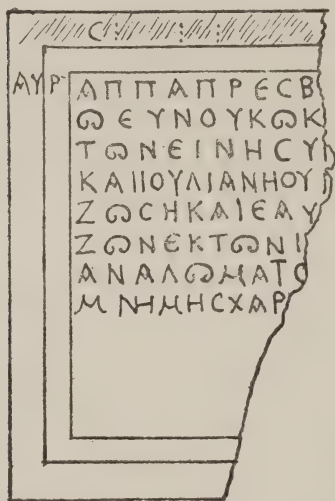 Ϲ
ΑΥΡ ΑΠΠΑΠΡΕϹΒ
ΩΕΥΝΟΥΚΩΚ
ΤΩΝΕΙΝΗϹΥ
ΚΑΙΙΟΥΛΙΑΝΗΟΥ
ΖΩϹΗΚΑΙΕΑΥ
ΖΩΝΕΚΤΩΝΙ
ΑΝΑΛΩΜΑΤΟ
ΜΝΗΜΗϹΧΑΡ